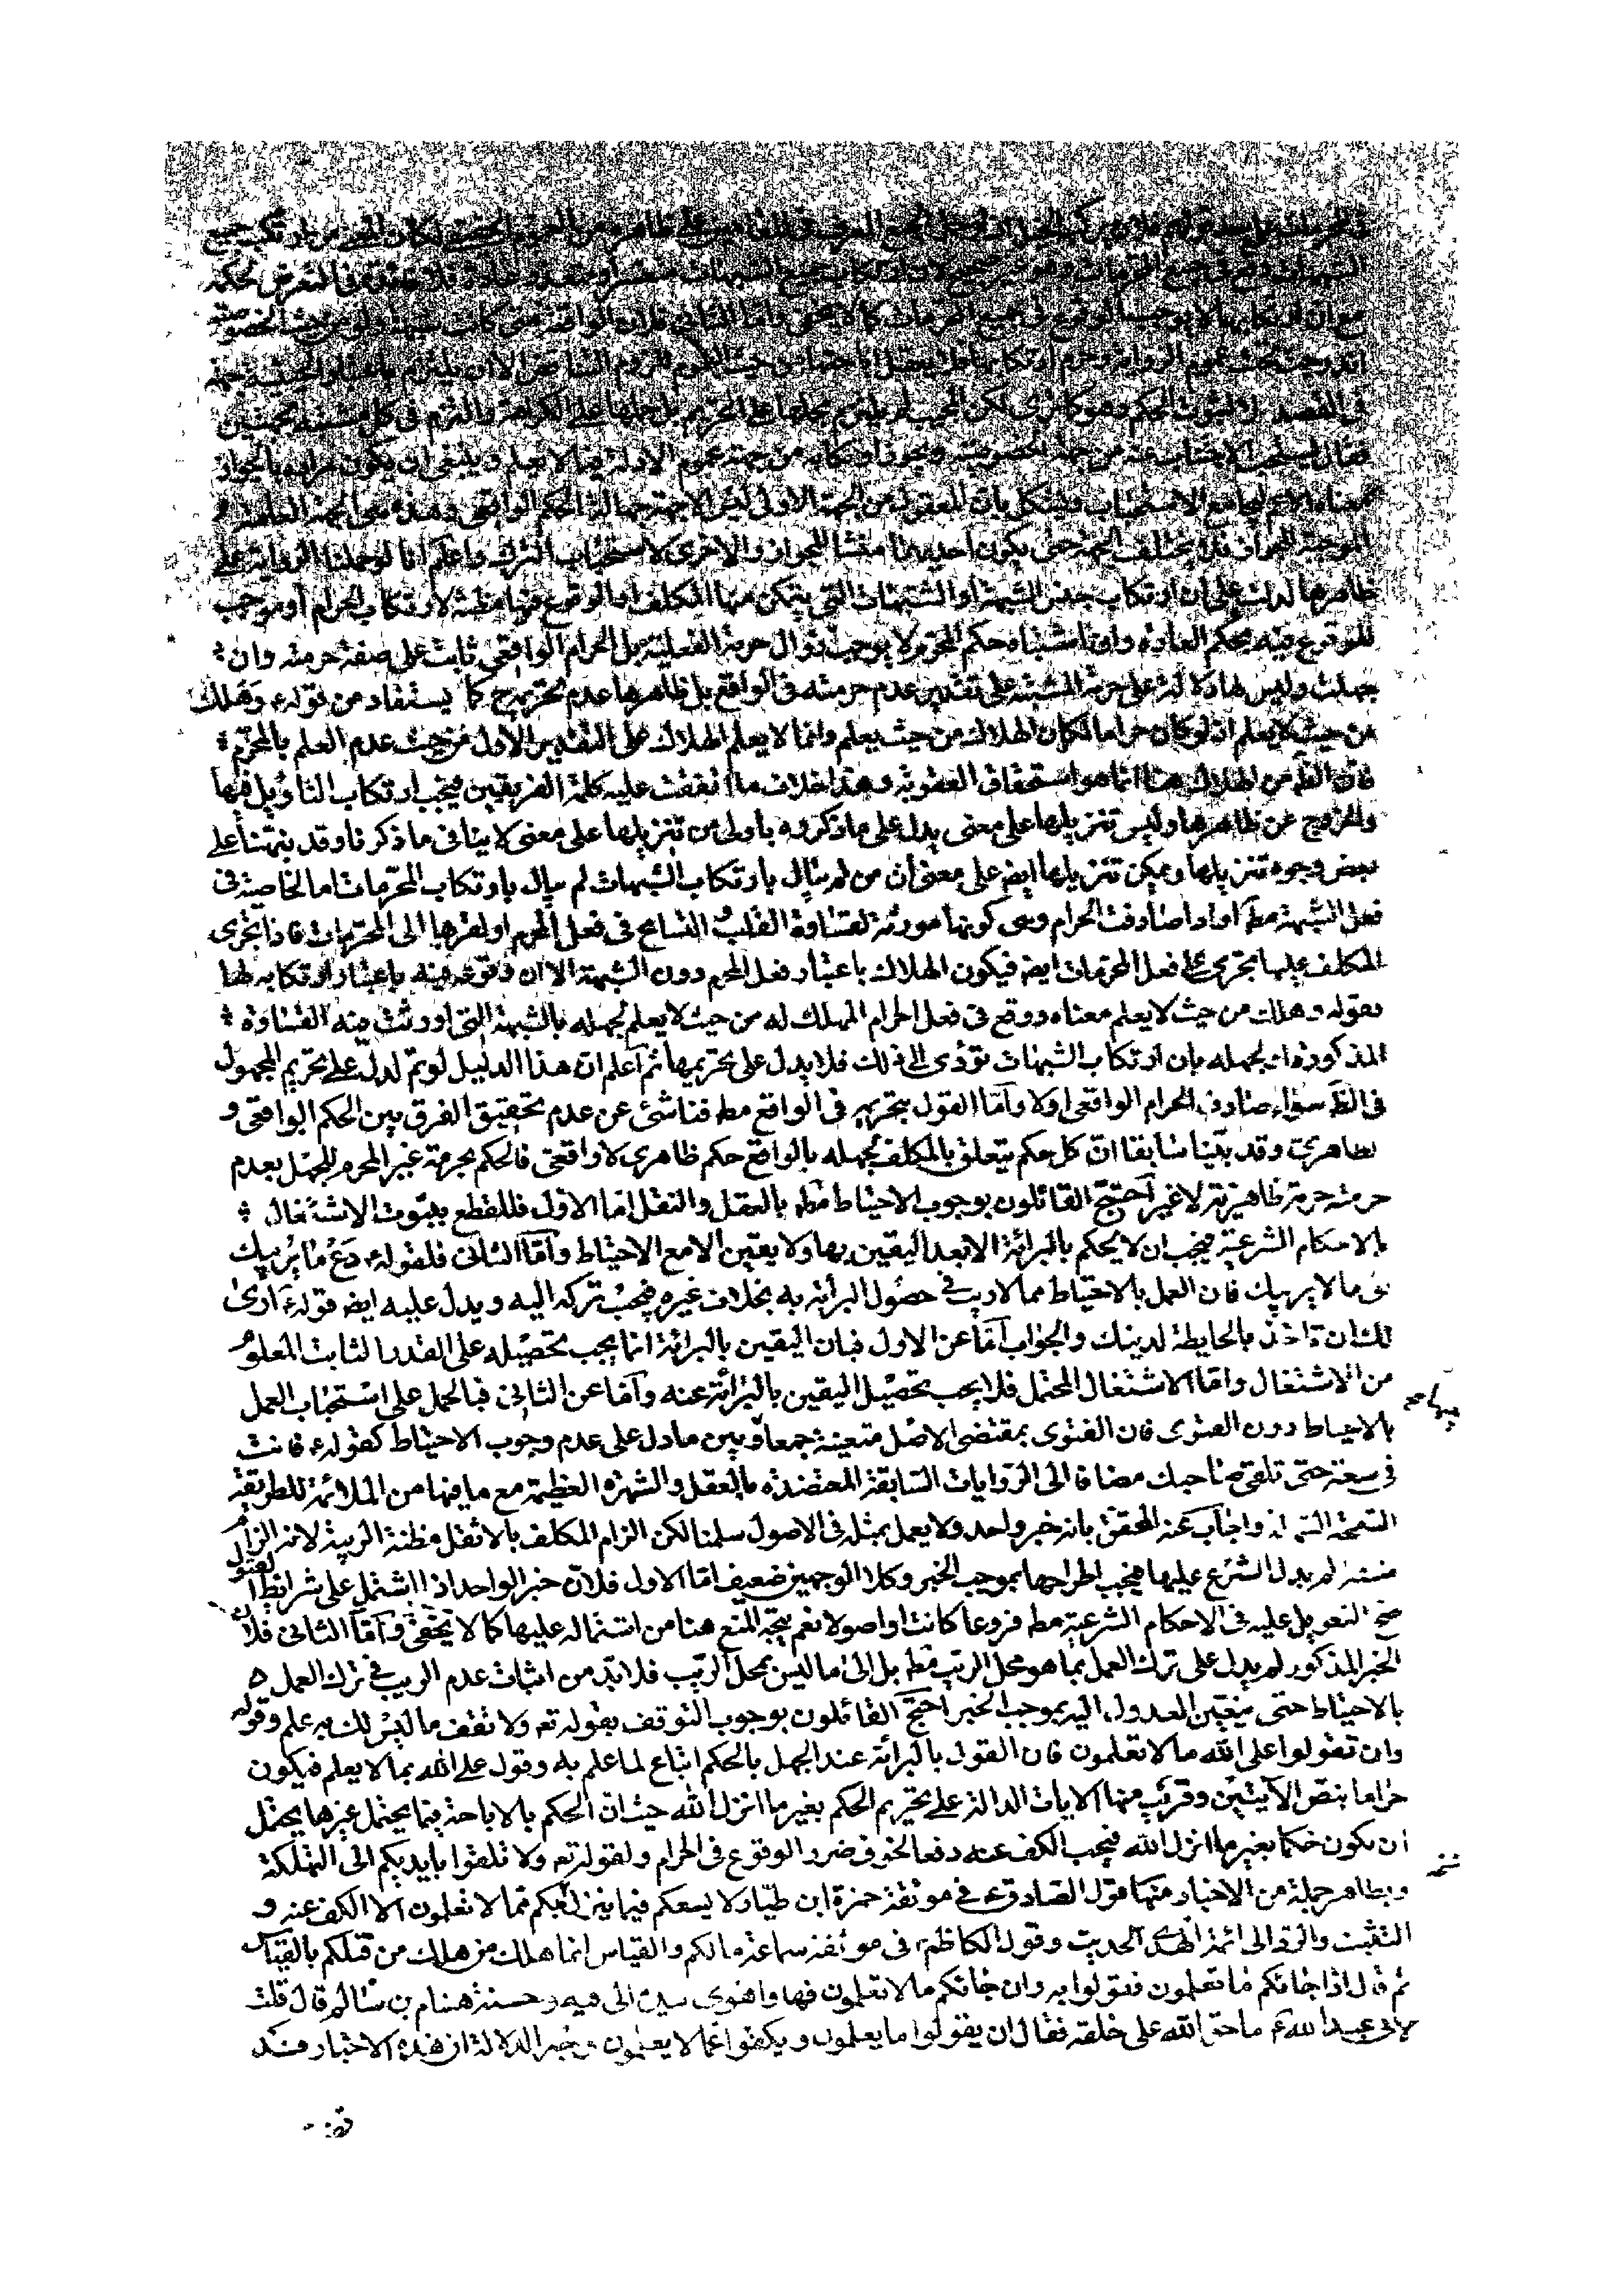 في المحرمات على حد قولهم فلان يركب الخيل
الشبهات وقع في جميع المحرمات وهو غير صحيح لان ارتكاب جميع الشبهات متعسر او متعذر عادة فلا فائدة في التعرض لحكمه
مع ان ارتكابها لا يوجب الوقوع في جميع المحرمات كما لا يخفى واما الثاني فلان الواقعة متى كانت شبهة ولو من حيث الخصوصية
اندرجت تحت عموم الرواية وحرم ارتكابها فلا يعقل اباحتها من حيث العموم للزوم التناقض الا ان يلتزم
في القصد لا لثبوت الحكم وهو كما ترى لكن المجيب لم يلتزم بحملها على التحريم بل حملها على الكراهة والتزم في كل مشتبه بجهتين
فقال يستحب الاجتناب عنه من جهة الخصوصية ويجوز ارتكابه من جهة عموم الادلة فيما لا يعلم وينبغي ان يكون مراده بالجواز
معناه الاعم ليجامع الاستحباب ويشكل بان المعقول من الجهة الاولى ليس الا جهة جهالة الحكم الواقعي وهذه هي الجهة الظاهرية
الموجبة للجواز فلا يختلف الجهة حتى يكون احديهما منشا للجواز والاخرى لاستحباب الترك واعلم انا لو حملنا الرواية على
ظاهرها لدلت على ان ارتكاب جنس الشبهة او الشبهات التي يتمكن منها المكلف او الوقوع فيها مظنة لارتكاب الحرام او موجب
للوقوع فيه بحكم العادة واما اشتباه حكم المحرم لا يوجب زوال حرمة الفعلية بل الحرام الواقعي ثابت على صفة حرمته وان
جهلت وليس لها دلالة على حرمة المشتبه على تقدير عدم حرمته في الواقع بل ظاهرها عدم تحريمه ح كما يستفاد من قوله ع وهلك
من حيث لا يعلم اذ لو كان حراما لكان الهلاك من حيث يعلم وانما لا يعلم الهلاك على التقدير الاول من حيث عدم العلم بالمحرم
فان الظ من الهلاك هنا انما هو استحقاق العقوبة وهذا خلاف ما اتفقت عليه كلمة الفريقين فيجب ارتكاب التاويل فيها
والخروج عن ظاهرها وليس تنزيلها على معنى يدل على ما ذكروه باولى من تنزيلها على معنى لا ينافى ما ذكرنا وقد نبهنا على
بعض وجوه تنزيلها ويمكن تنزيلها ايضا على معنى ان من لم يبال بارتكاب الشبهات لم يبال بارتكاب المحرمات اما لخاصية في
فعل الشبهة مط او اذا صادفت الحرام وهى كونها مورثة لقساوة القلب والتسامح في فعل المحرم او لقربها الى المحرمات فاذا تجرى
المكلف عليها تجرى على فعل المحرمات ايضا فيكون الهلاك باعتبار فعل المحرم دون الشبهة الا ان وقوعه فيه باعتبار ارتكابه لها
فقوله وهلك من حيث لا يعلم معناه ووقع في فعل الحرام المهلك له من حيث لا يعلم لجهله بالشبهة التي اورثت فيه القساوة
المذكورة او لجهله بان ارتكاب الشبهات تؤدى الى ذلك فلا يدل على تحريمها ثم اعلم ان هذا الدليل لو تم لدل على تحريم المجهول
في الظ سواء صادف الحرام الواقعي اولا واما القول بتحريمه في الواقع مط فناشئ عن عدم تحقيق الفرق بين الحكم الواقعي و
ظاهري وقد بينا سابقا ان كل حكم يتعلق بالمكلف لجهله بالواقع حكم ظاهري لا واقعي فالحكم بحرمة غير المحرم للجهل بعدم
حرمته حرمة ظاهرية لا غير احتج القائلون بوجوب الاحتياط مط بالعقل والنقل اما الاول فللقطع بثبوت الاشتغال
بالاحكام الشرعية فيجب ان لا يحكم بالبرائة الا بعد اليقين بها ولا يقين الا مع الاحتياط واما الثاني فلقوله ع دع ما يريبك
الى ما لا يريبك فان العمل بالاحتياط مما لا ريب في حصول البرائة به بخلاف غيره فيجب تركه اليه ويدل عليه ايضا قوله ع ارى
لك ان تاخذ بالحايطة لدينك والجواب اما عن الاول فبان اليقين بالبرائة انما يجب تحصيله على القدر الثابت المعلوم
من الاشتغال واما الاشتغال المحتمل فلا يجب تحصيل اليقين بالبرائة عنه واما عن الثاني فبالحمل على استحباب العمل
بالاحتياط دون الفتوى فان الفتوى بمقتضى الاصل متعينة جمعا وبين ما دل على عدم وجوب الاحتياط كقوله ع فانت
في سعة حتى تلقى صاحبك مضافا الى الروايات السابقة المعتضدة بالعقل والشهرة العظيمة مع ما فيها من الملائمة للطريقة
السمحة السهلة واجاب عنه المحقق بانه خبر واحد ولا يعمل بمثله في الاصول سلمنا لكن الزام المكلف بالاثقل مظنة الريبة لانه الزام
مشقة لم يدل الشرع عليها فيجب اطراحها بموجب الخبر وكلا الوجهين ضعيف اما الاول فلان خبر الواحد اذا اشتمل على شرائط القبول
صح التعويل عليه في الاحكام الشرعية مط فروعا كانت او اصولا نعم يتجه المنع هنا من اشتماله عليها كما لا يخفى واما الثاني فلان
الخبر المذكور لم يدل على ترك العمل بما هو محل الريب مط بل الى ما ليس بمحل الريب فلا بد من اثبات عدم الريب في ترك العمل
بالاحتياط حتى يتعين العدول اليه بموجب الخبر احتج القائلون بوجوب التوقف بقوله تعم ولا تقف ما ليس لك به علم وقوله
وان تقولوا على الله ما لا تعلمون فان القول بالبرائة عند الجهل بالحكم اتباع لما علم به وقول على الله بما لا يعلم فيكون
حراما بنص الآيتين وقريب منها الايات الدالة على تحريم الحكم بغير ما انزل الله حيث ان الحكم بالاباحة فيما يحتمل غيرها يحتمل
ان يكون حكما بغير ما انزل الله فيجب الكف عنه دفعا لخوف ضرر الوقوع في الحرام ولقوله تعم ولا تلقوا بايديكم الى التهلكة
وبظاهر جملة من الاخبار منها قول الصادق ع في موثقة حمزة ابن طيار لا يسعكم فيما ينزل بكم مما لا تعلمون الا الكف عنه و
التثبت والرد الى ائمة الهدى الحديث وقول الكاظم ع في موثقة سماعة مالكم والقياس انما هلك من هلك من قبلكم بالقياس
ثم قال اذا جائكم ما تعلمون فقولوا به وان جائكم ما لا تعلمون فها واهوى بيده الى فيه وحسنة هشام بن سالم قال قلت
لابي عبد الله ع ما حق الله على خلقه فقال ان يقولوا ما يعلمون ويكفوا عما لا يعلمون وجه الدلالة ان هذه الاخبار قد